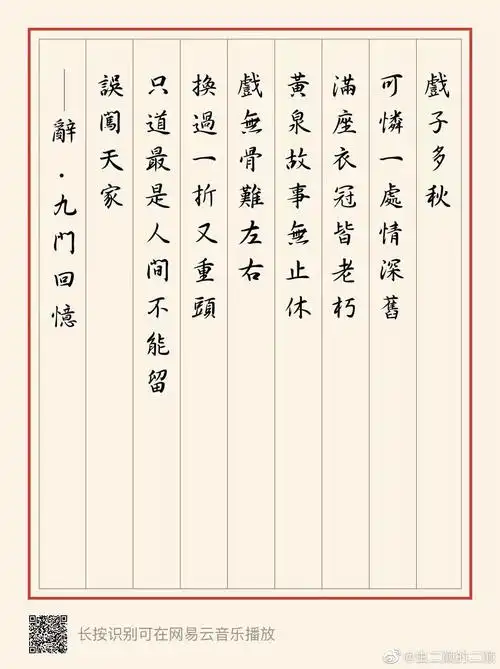 戲子多秋
可憐一處情深舊
滿座衣冠皆老朽
黃泉故事無止休
戲無骨難左右
換過一折又重頭
只道最是人間不能留
誤闖天家
——辭·九門回憶
长按识别可在网易云音乐播放